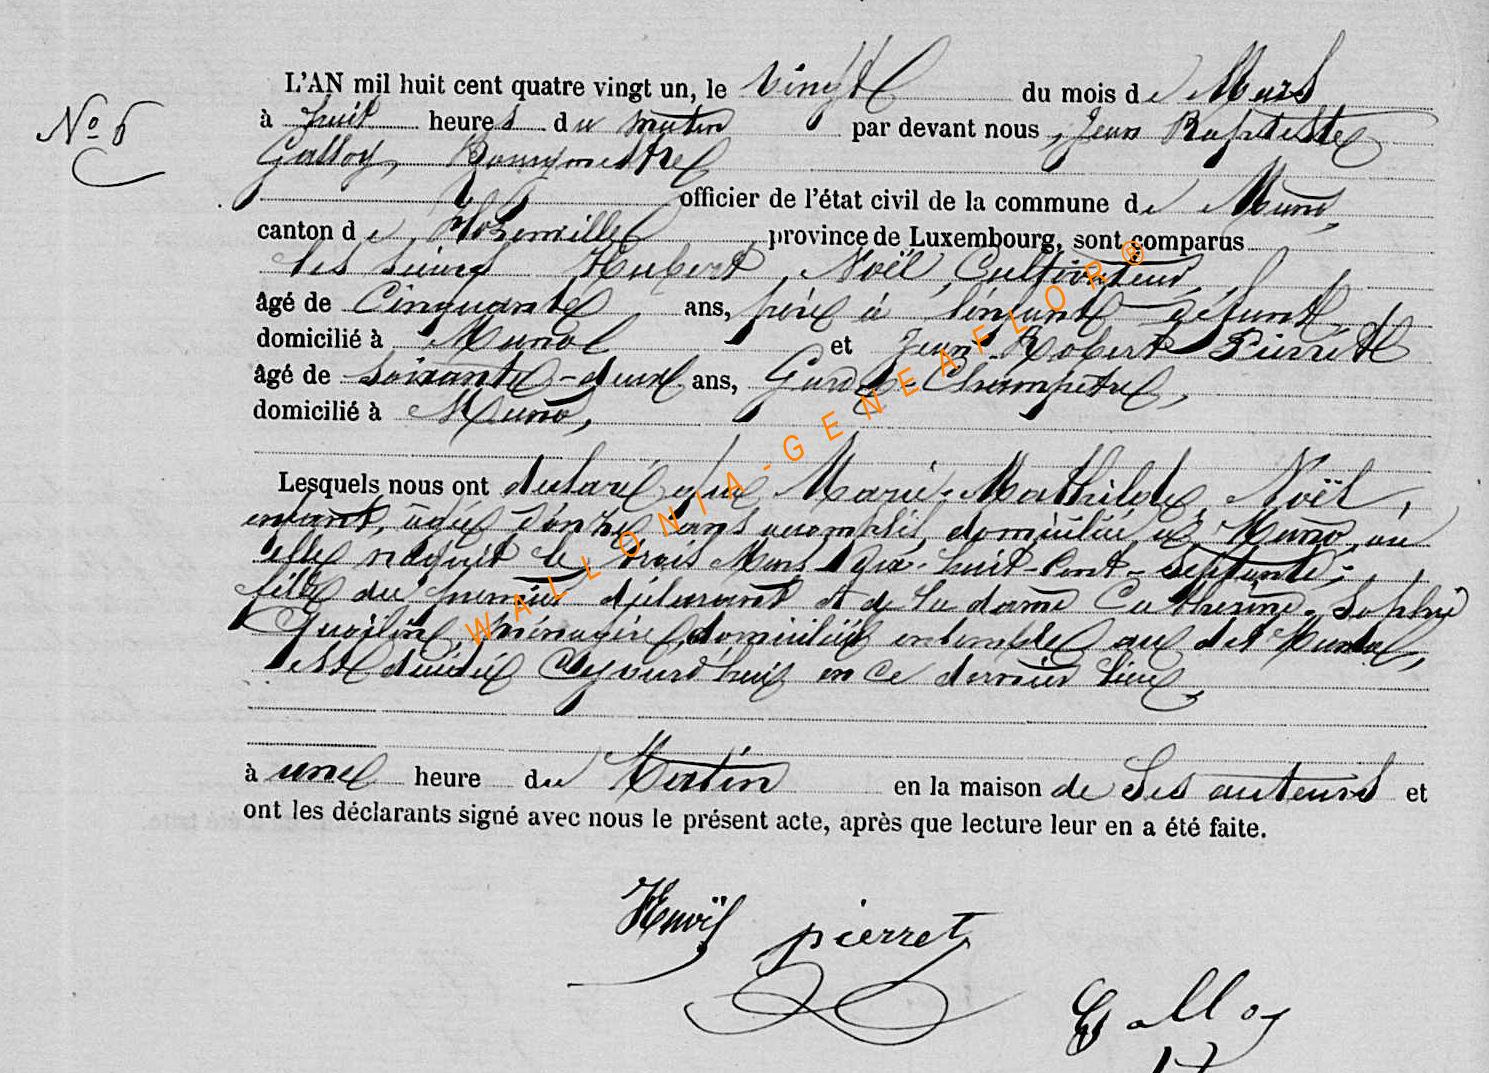 No 6
L'AN mil huit cent quatre vingt un, le Vingt du mois de Mars
à huit heures du matin par devant nous, Jean Baptiste
Galloy, Bourgmestre
officier de l'état civil de la commune de Muno,
canton de Florenville province de Luxembourg, sont comparus
les sieurs Hubert Noël, Cultivateur,
âgé de Cinquante ans, père à l'enfant défunt,
domicilié à Muno et Jean Robert Pierret
âgé de soixante-deux ans, Garde-Champêtre,
domicilié à Muno,
Lesquels nous ont déclaré que Marie-Mathilde Noël,
enfant, âgée d'onze ans accomplis, domiciliée à Muno, ou
elle naquit le trois Mars dix-huit-Cent-septante;
fille du premier déclarant et de la dame Catherine-Sophie
ménagère, domiciliés ensemble au dit Muno,
est décédée aujourd'hui en ce dernier lieu,
à une heure du Matin en la maison de Ses auteurs et
ont les déclarants signé avec nous le présent acte, après que lecture leur en a été faite.
HNoël pierret
Galloy
WALLONIA-GENEAFLOR®